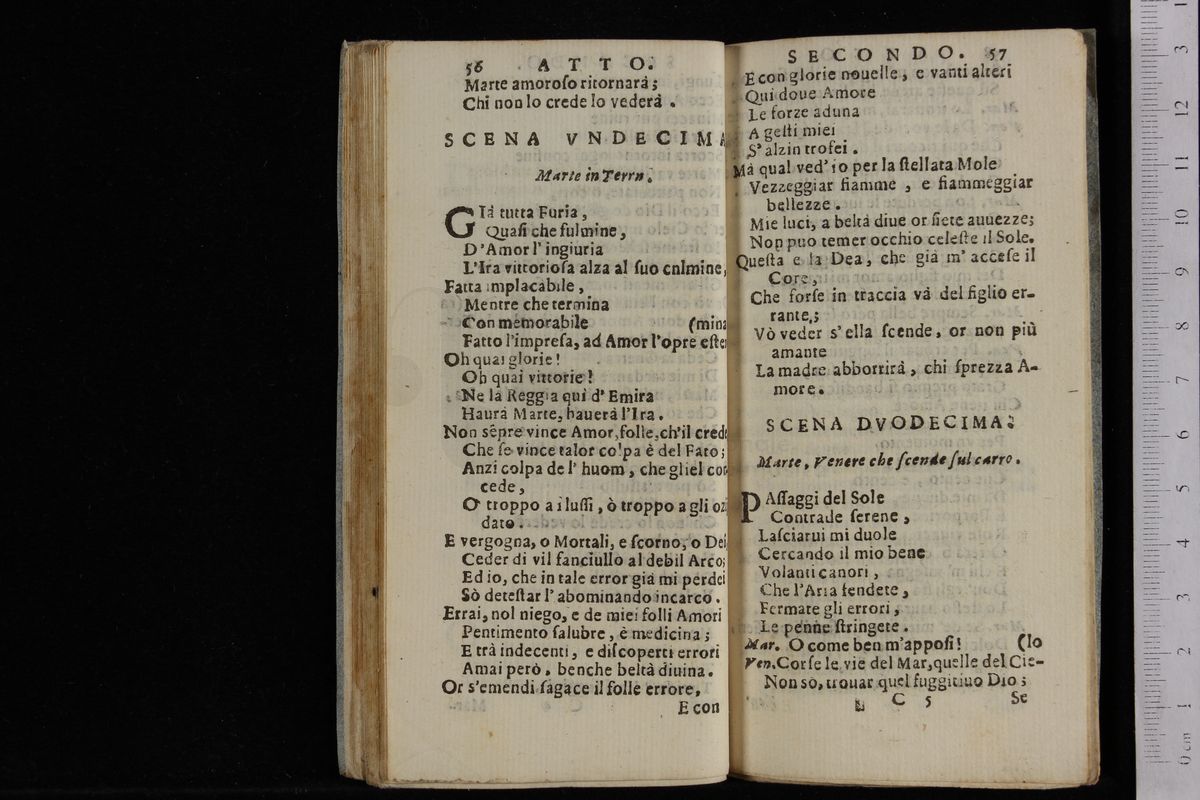 56 ATTO.
Marte amoroſo ritornarà;
Chi non lo crede lo vederà.
SCENA VNDECIMA
Marte in Terra.
GIà tutta Furia,
Quaſi che fulmine,
D'Amor l'ingiuria
L'Ira vittorioſa alza al ſuo cnlmine,
Fatta implacabile,
Mentre che termina
Con memorabile (mina
Fatto l'impreſa, ad Amor l'opre eſter
Oh quai glorie!
Oh quai vittorie!
Ne la Reggia qui d'Emira
Haurà Marte, hauerà l'Ira.
Non sẽpre vince Amor, folle, ch'il crede
Che ſe vince talor colpa è del Fato;
Anzi colpa de l'huom, che gliel con
cede,
O' troppo a i luſſi, ò troppo a gli ozi
dato.
E vergogna, o Mortali, e ſcorno, o Dei
Ceder di vil fanciullo al debil Arco;
Ed io, che in tale error già mi perdei
Sò deteſtar l'abominando incarco.
Errai, nol niego, e de miei folli Amori
Pentimento ſalubre, è medicina;
E trà indecenti, e diſcoperti errori
Amai però, benche beltà diuina.
Or s'emendi ſagace il folle errore,
E con
SECONDO. 57
E con glorie nouelle, e vanti alteri
Qui doue Amore
Le forze aduna
A geſti miei
S'alzin trofei.
Mà qual ved'io per la ſtellata Mole
Vezzeggiar fiamme, e fiammeggiar
bellezze.
Mie luci, a beltà diue or ſiete auuezze;
Non puo temer occhio celeſte il Sole.
Queſta e la Dea, che già m'acceſe il
Core,
Che forſe in traccia và del figlio er-
rante;
Vò veder s'ella ſcende, or non più
amante
La madre abborrirà, chi ſprezza A-
more.
SCENA DVODECIMA.
Marte, Venere che ſcende ſul carro.
PAſſaggi del Sole
Contrade ſerene,
Laſciarui mi duole
Cercando il mio bene
Volanti canori,
Che l'Aria fendete,
Fermate gli errori,
Le penne ſtringete.
Mar. O come ben m'appoſi! (lo
Ven. Corſe le vie del Mar, quelle del Cie-
Non sò, trouar quel fuggitiuo Dio;
C 5 Se